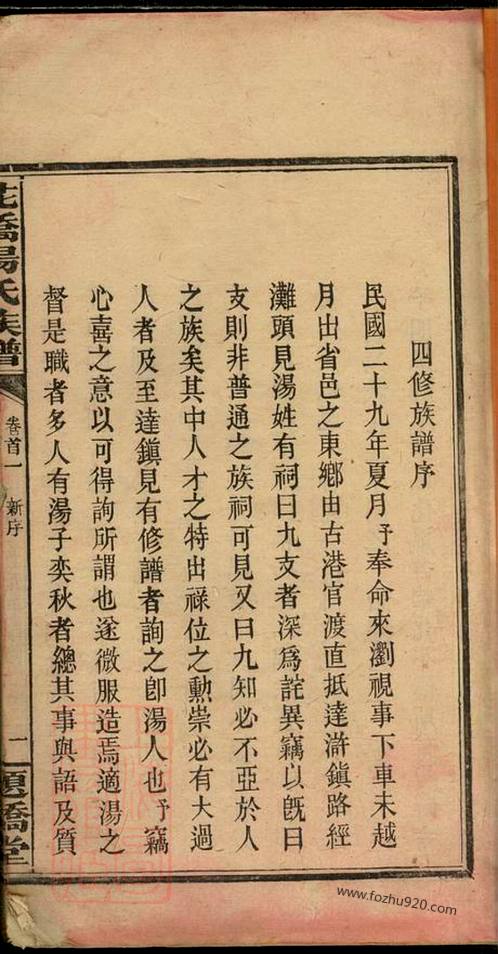 四修族譜序
民國二十九年夏月予奉命來瀏視事下車未越
月出省邑之東鄉由古港官渡直抵達滸鎭路經
灘頭見湯姓有祠曰九支者深爲詫異竊以旣曰
支則非普通之族祠可見又曰九知必不亞於人
之族矣其中人才之特出祿位之勳崇必有大過
人者及至達鎭見有修譜者詢之卽湯人也予竊
心喜之意以可得詢所謂也遂微服造焉適湯之
督是職者多人有湯子奕秋者總其事與語及質
花橋湯氏族譜
卷首一
新序
一
www.fozhu920.com